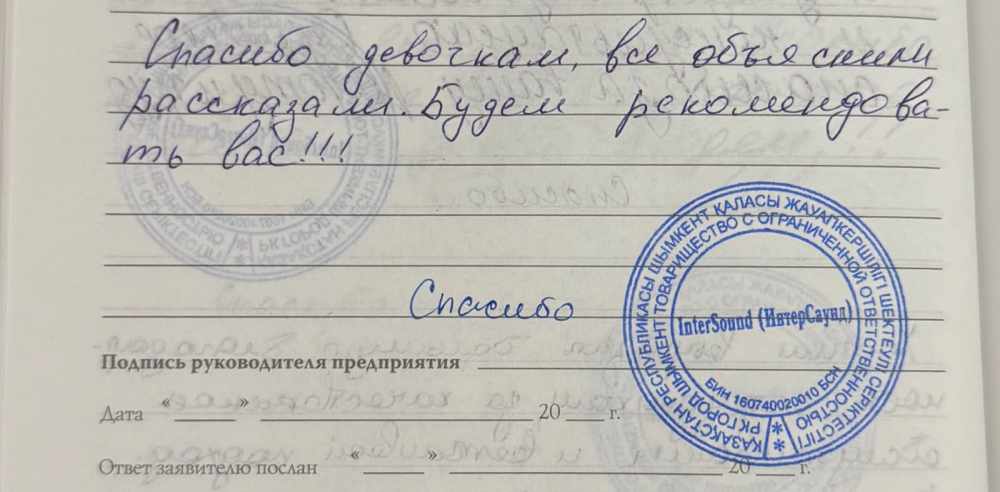 Спасибо девочкам, все объяснили
рассказали. Будем рекомендова-
ть вас!!!
Спасибо
Подпись руководителя предприятия
Дата « » 20 г.
Ответ заявителю послан « » 20 г.
ҚАЗАҚСТАН РЕСПУБЛИКАСЫ ШЫМКЕНТ ҚАЛАСЫ ЖАУАПКЕРШІЛІГІ ШЕКТЕУЛІ СЕРІКТЕСТІГІ
РК ГОРОД ШЫМКЕНТ ТОВАРИЩЕСТВО С ОГРАНИЧЕННОЙ ОТВЕТСТВЕННОСТЬЮ
InterSound (ИнтерСаунд)
БИН 160740020010 БСН